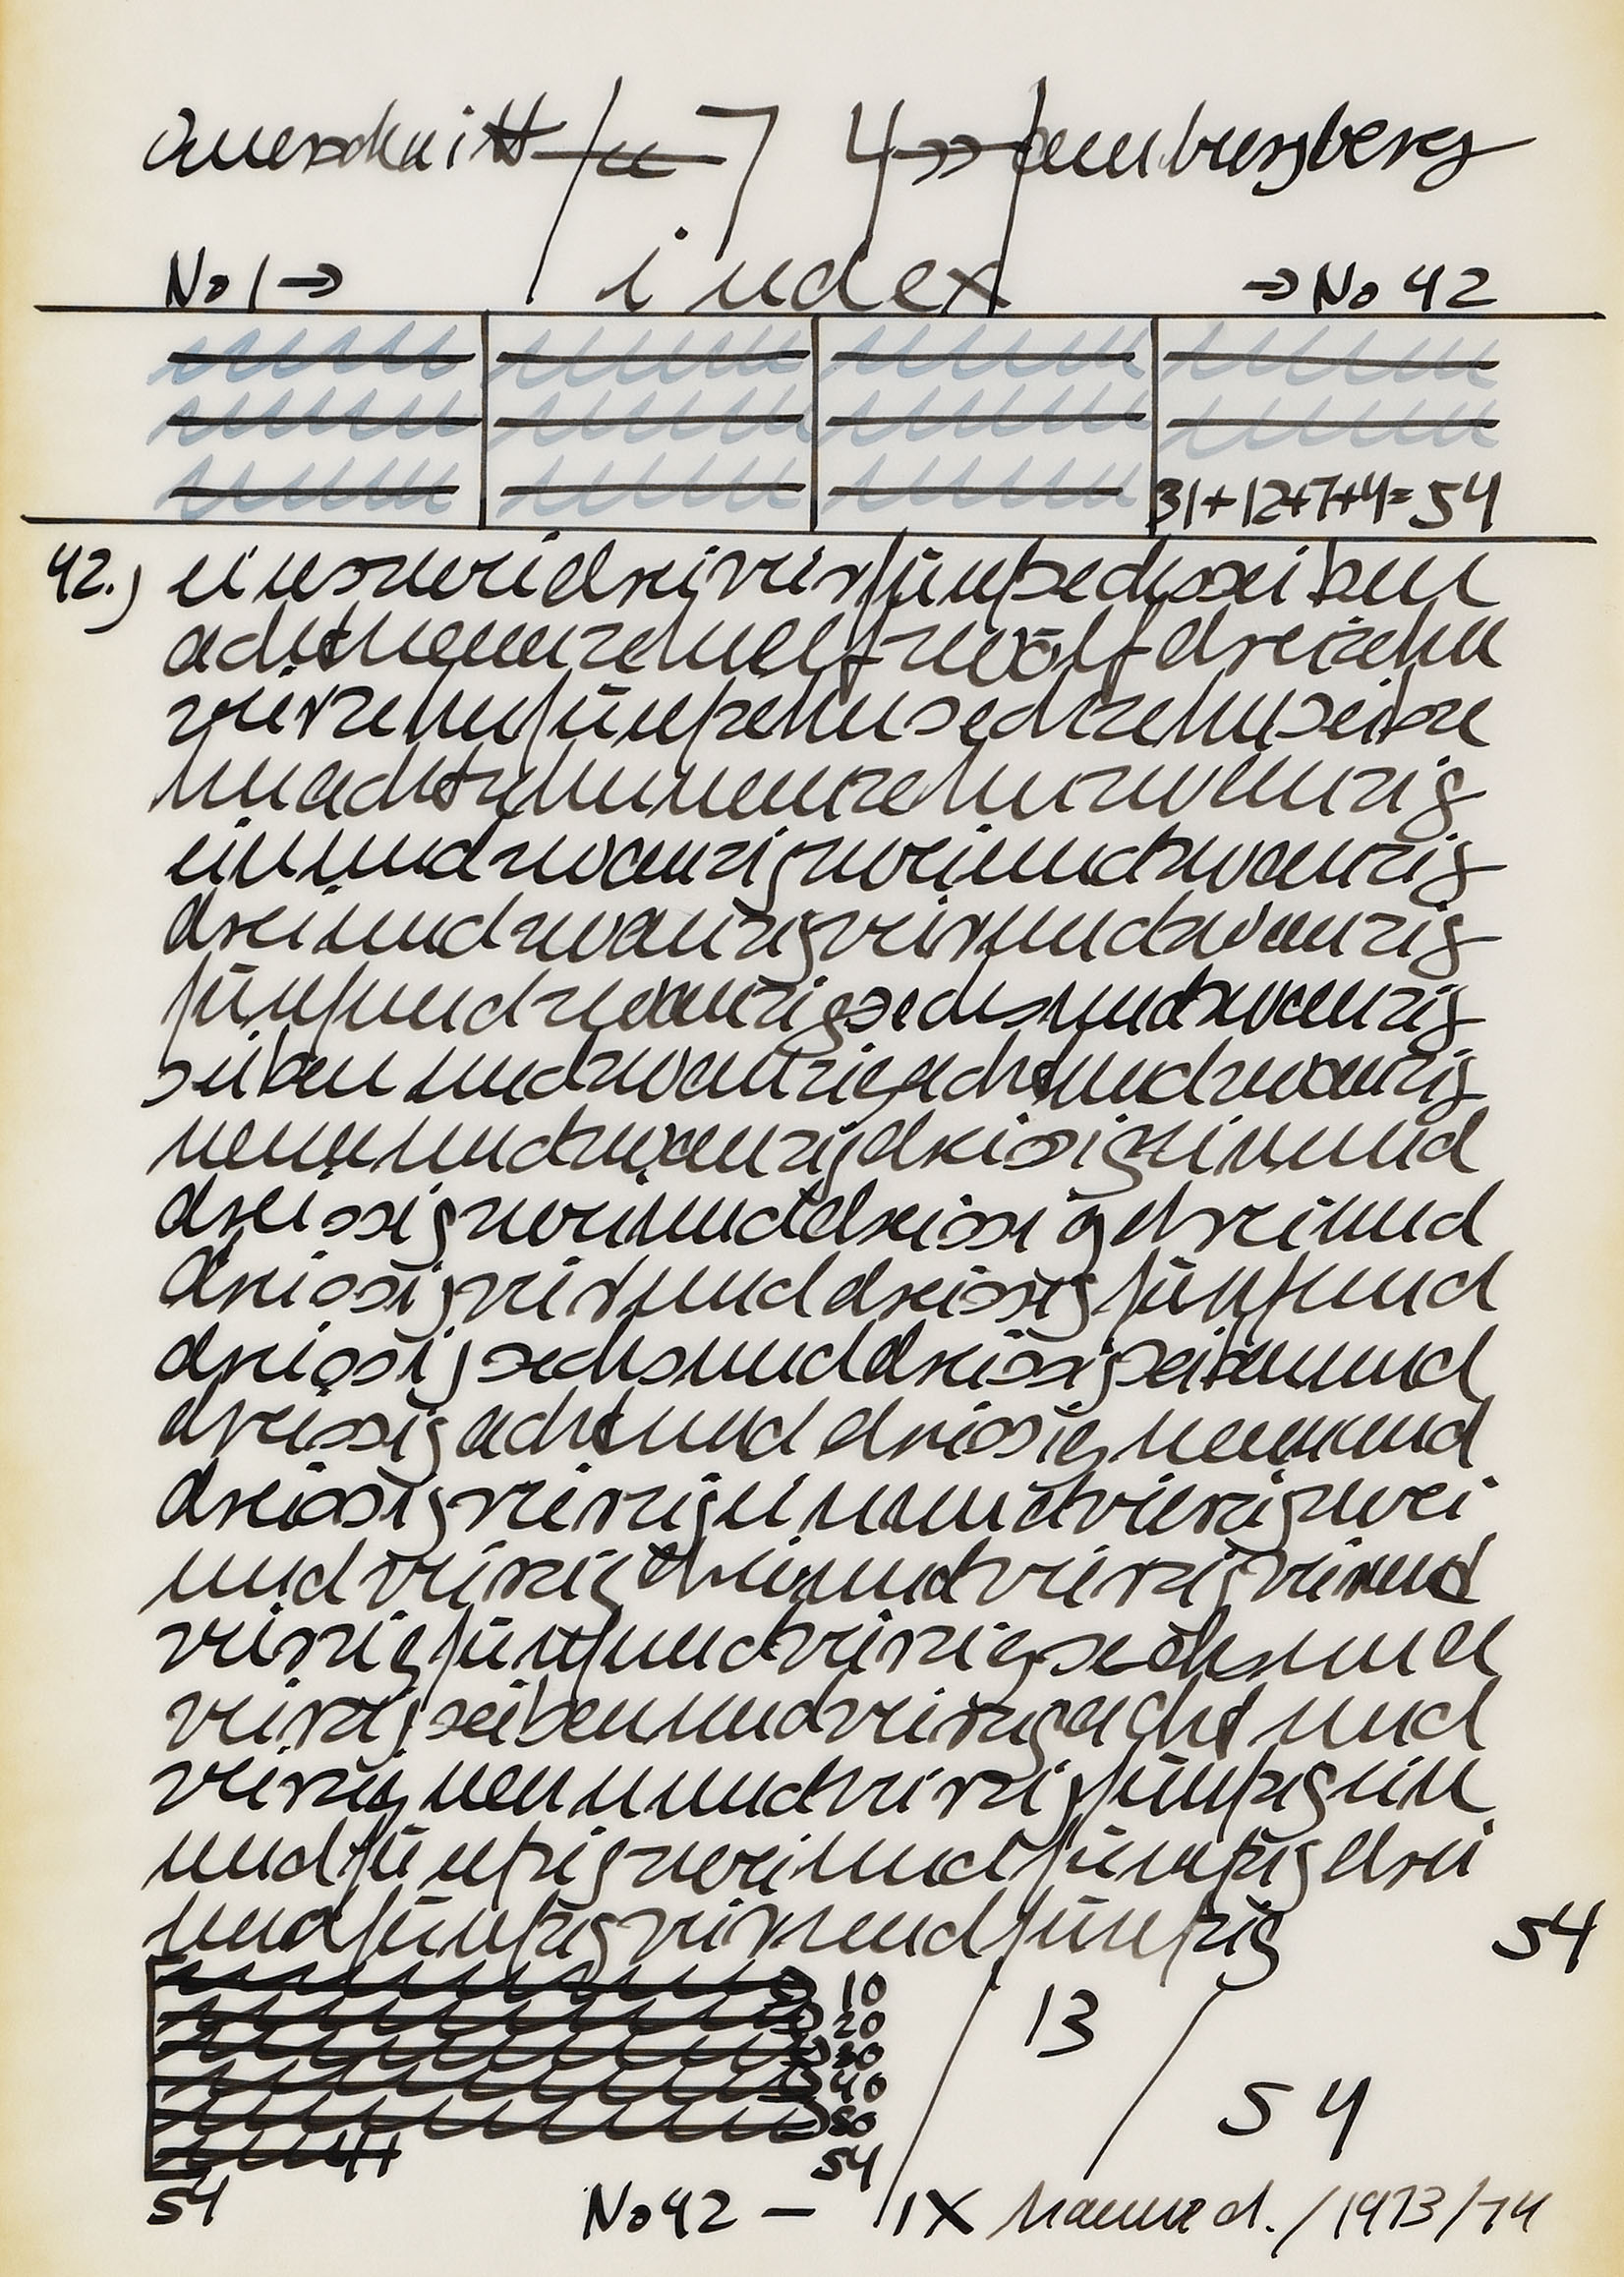 Querschnitt
No 1 → index → No 42
31+12+7+4=54
42.) einszweidreivierfünfsechssieben
achtneunzehnelfzwölfdreizehn
vierzehnfünfzehnsechzehnsiebze
hnachtzehnneunzehnzwanzig
einundzwanzigzweiundzwanzig
dreiundzwanzigvierundzwanzig
fünfundzwanzigsechsundzwanzig
siebenundzwanzigachtundzwanzig
neunundzwanzigdreissigeinund
dreissigzweiunddreissigdreiund
dreissigvierunddreissigfünfund
dreissigsechsunddreissigsiebenund
dreissigachtunddreissigneunund
dreissigvierzigeinundvierzigzwei
undvierzigdreiundvierzigvierund
vierzigfünfundvierzigsechsund
vierzigsiebenundvierzigachtund
vierzigneunundvierzigfünfzigein
undfünfzigzweiundfünfzigdrei
undfünfzigvierundfünfzig 54
10
20
30
40
50
54
54
13
54
No 42 – IX 1973/74